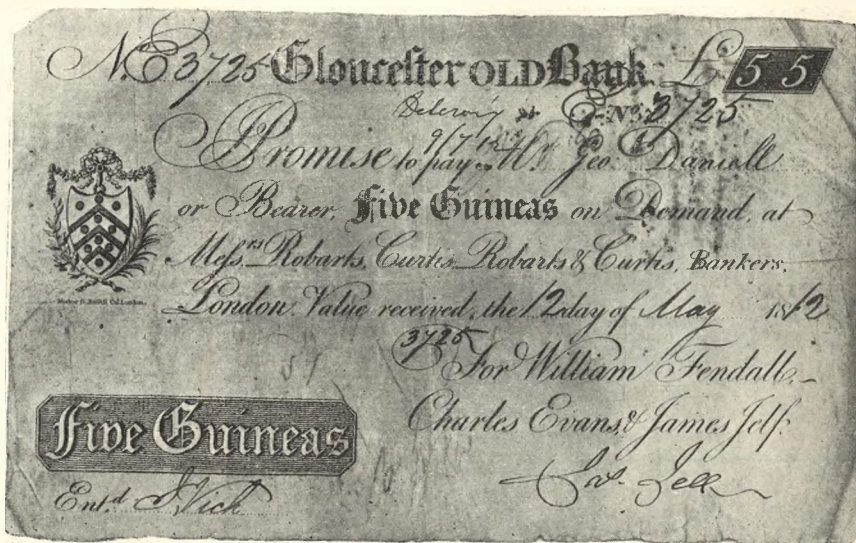 No 3725 Gloucester OLD Bank £ 5 5
No 3725
I Promise to pay Mr. Geo. Daniell
or Bearer, Five Guineas on Demand, at
Messrs. Robarts, Curtis, Robarts & Curtis, Bankers,
London. Value received, the 12 day of May 1812
3725
For William Fendall,
Charles Evans, & James Jelf.
Five Guineas
Jas. Jelf
Entd.